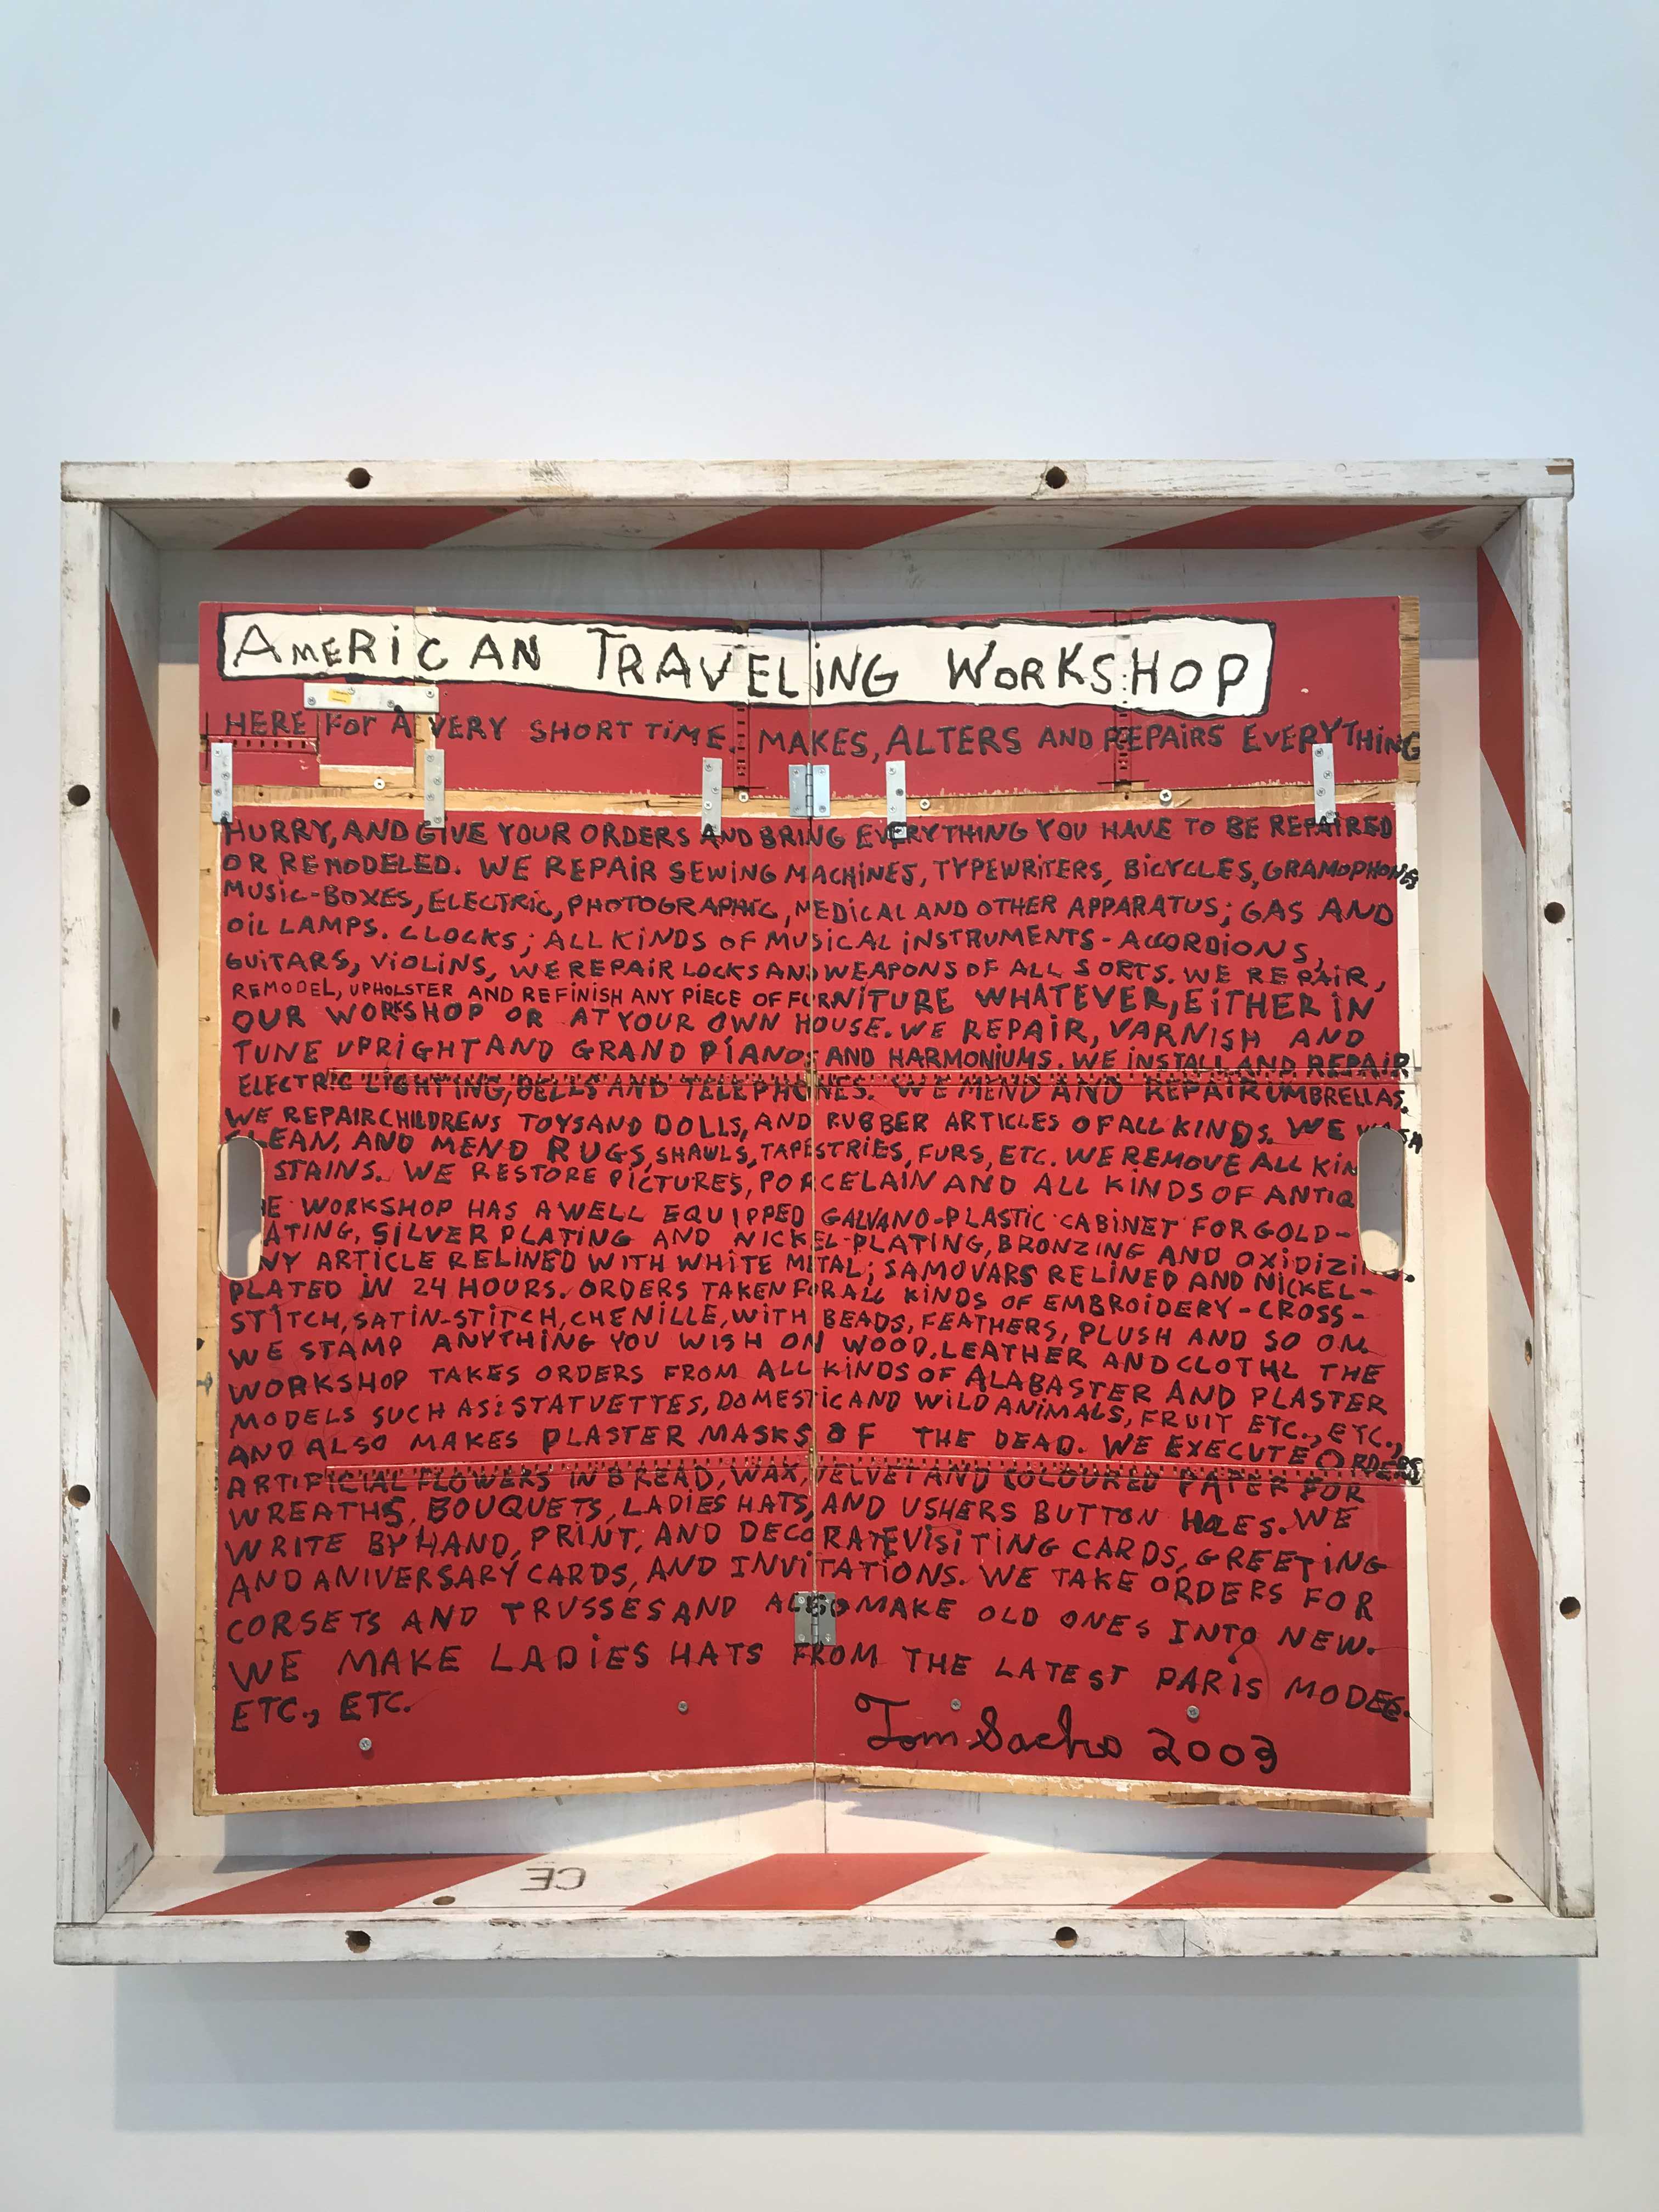 AMERICAN TRAVELING WORKSHOP
HERE FOR A VERY SHORT TIME. MAKES, ALTERS AND REPAIRS EVERYTHING
HURRY, AND GIVE YOUR ORDERS AND BRING EVERYTHING YOU HAVE TO BE REPAIRED
OR REMODELED. WE REPAIR SEWING MACHINES, TYPEWRITERS, BICYCLES, GRAMOPHONES
MUSIC-BOXES, ELECTRIC, PHOTOGRAPHIC, MEDICAL AND OTHER APPARATUS; GAS AND
OIL LAMPS. CLOCKS; ALL KINDS OF MUSICAL INSTRUMENTS - ACCORDIONS,
GUITARS, VIOLINS, WE REPAIR LOCKS AND WEAPONS OF ALL SORTS. WE REPAIR,
REMODEL, UPHOLSTER AND REFINISH ANY PIECE OF FURNITURE WHATEVER, EITHER IN
OUR WORKSHOP OR AT YOUR OWN HOUSE. WE REPAIR, VARNISH AND
TUNE UPRIGHT AND GRAND PIANOS AND HARMONIUMS. WE INSTALL AND REPAIR
ELECTRIC LIGHTING, BELLS AND TELEPHONES. WE MEND AND REPAIR UMBRELLAS.
WE REPAIR CHILDRENS TOYS AND DOLLS, AND RUBBER ARTICLES OF ALL KINDS. WE
CLEAN, AND MEND RUGS, SHAWLS, TAPESTRIES, FURS, ETC. WE REMOVE ALL KIN
STAINS. WE RESTORE PICTURES, PORCELAIN AND ALL KINDS OF ANTIQ
HE WORKSHOP HAS A WELL EQUIPPED GALVANO-PLASTIC CABINET FOR GOLD-
ATING, SILVER PLATING AND NICKEL-PLATING, BRONZING AND OXIDIZI
NY ARTICLE RELINED WITH WHITE METAL; SAMOVARS RELINED AND NICKEL-
PLATED IN 24 HOURS. ORDERS TAKEN FOR ALL KINDS OF EMBROIDERY - CROSS-
STITCH, SATIN-STITCH, CHENILLE, WITH BEADS, FEATHERS, PLUSH AND SO ON.
WE STAMP ANYTHING YOU WISH ON WOOD, LEATHER AND CLOTH. THE
WORKSHOP TAKES ORDERS FROM ALL KINDS OF ALABASTER AND PLASTER
MODELS SUCH AS: STATUETTES, DOMESTIC AND WILD ANIMALS, FRUIT ETC., ETC.,
AND ALSO MAKES PLASTER MASKS OF THE DEAD. WE EXECUTE ORDERS
ARTIFICIAL FLOWERS IN BREAD, WAX, VELVET AND COLOURED PAPER FOR
WREATHS, BOUQUETS, LADIES HATS, AND USHERS BUTTON HOLES. WE
WRITE BY HAND, PRINT, AND DECORATE VISITING CARDS, GREETING
AND ANIVERSARY CARDS, AND INVITATIONS. WE TAKE ORDERS FOR
CORSETS AND TRUSSES AND ALSO MAKE OLD ONES INTO NEW.
WE MAKE LADIES HATS FROM THE LATEST PARIS MODES.
ETC., ETC.
Tom Sachs 2003
CE